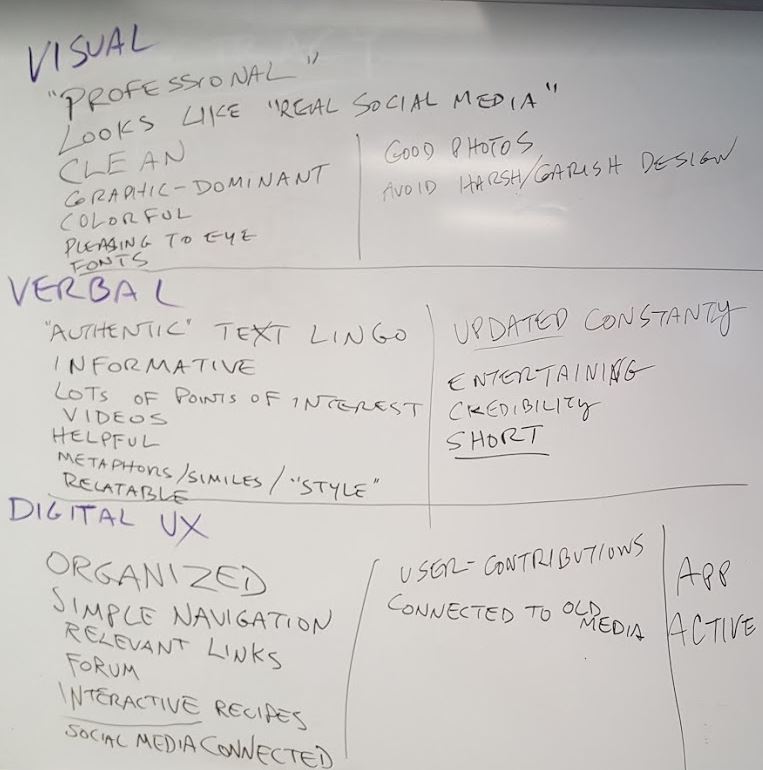 VISUAL
"PROFESSIONAL"
LOOKS LIKE "REAL SOCIAL MEDIA"
CLEAN
GRAPHIC-DOMINANT
COLORFUL
PLEASING TO EYE
FONTS
GOOD PHOTOS
AVOID HARSH/GARISH DESIGN
VERBAL
"AUTHENTIC" TEXT LINGO
INFORMATIVE
LOTS OF POINTS OF INTEREST
VIDEOS
HELPFUL
METAPHORS/SIMILES/"STYLE"
RELATABLE
UPDATED CONSTANTY
ENTERTAINING
CREDIBILITY
SHORT
DIGITAL UX
ORGANIZED
SIMPLE NAVIGATION
RELEVANT LINKS
FORUM
INTERACTIVE RECIPES
SOCIAL MEDIA CONNECTED
USER-CONTRIBUTIONS
CONNECTED TO OLD
MEDIA
APP
ACTIVE